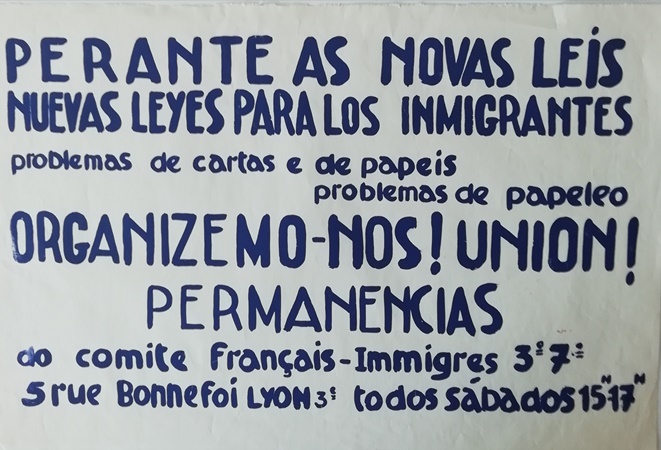 PERANTE AS NOVAS LEIS
NUEVAS LEYES PARA LOS INMIGRANTES
problemas de cartas e de papeis
problemas de papeleo
ORGANIZEMO-NOS! UNION!
PERMANENCIAS
do comite Français-Immigres 3e 7e
5 rue Bonnefoi LYON 3e todos sábados 15H17H